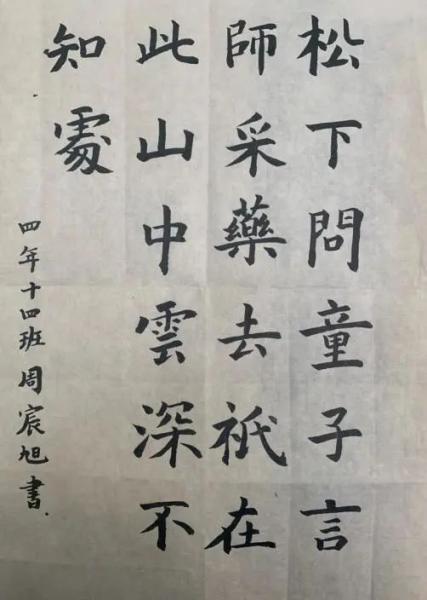 松下問童子言
師采藥去祇在
此山中雲深不
知處
四年十四班周宸旭書